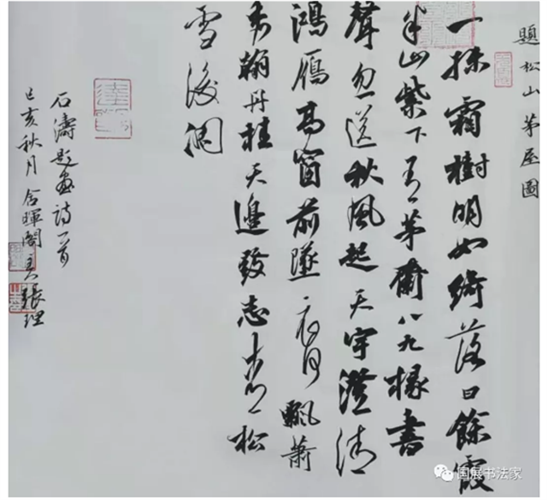 題松山茅屋圖
一抹霜樹明如綺落日餘霞
半山紫下有茅廬八九椽書
聲忽送秋風起天宇澄清
鴻雁高窗前墜月飄蕭
翰丹桂天邊發志松
雪後凋
石濤題畫詩一首
己亥秋月含暉閣主張理
国展书法家